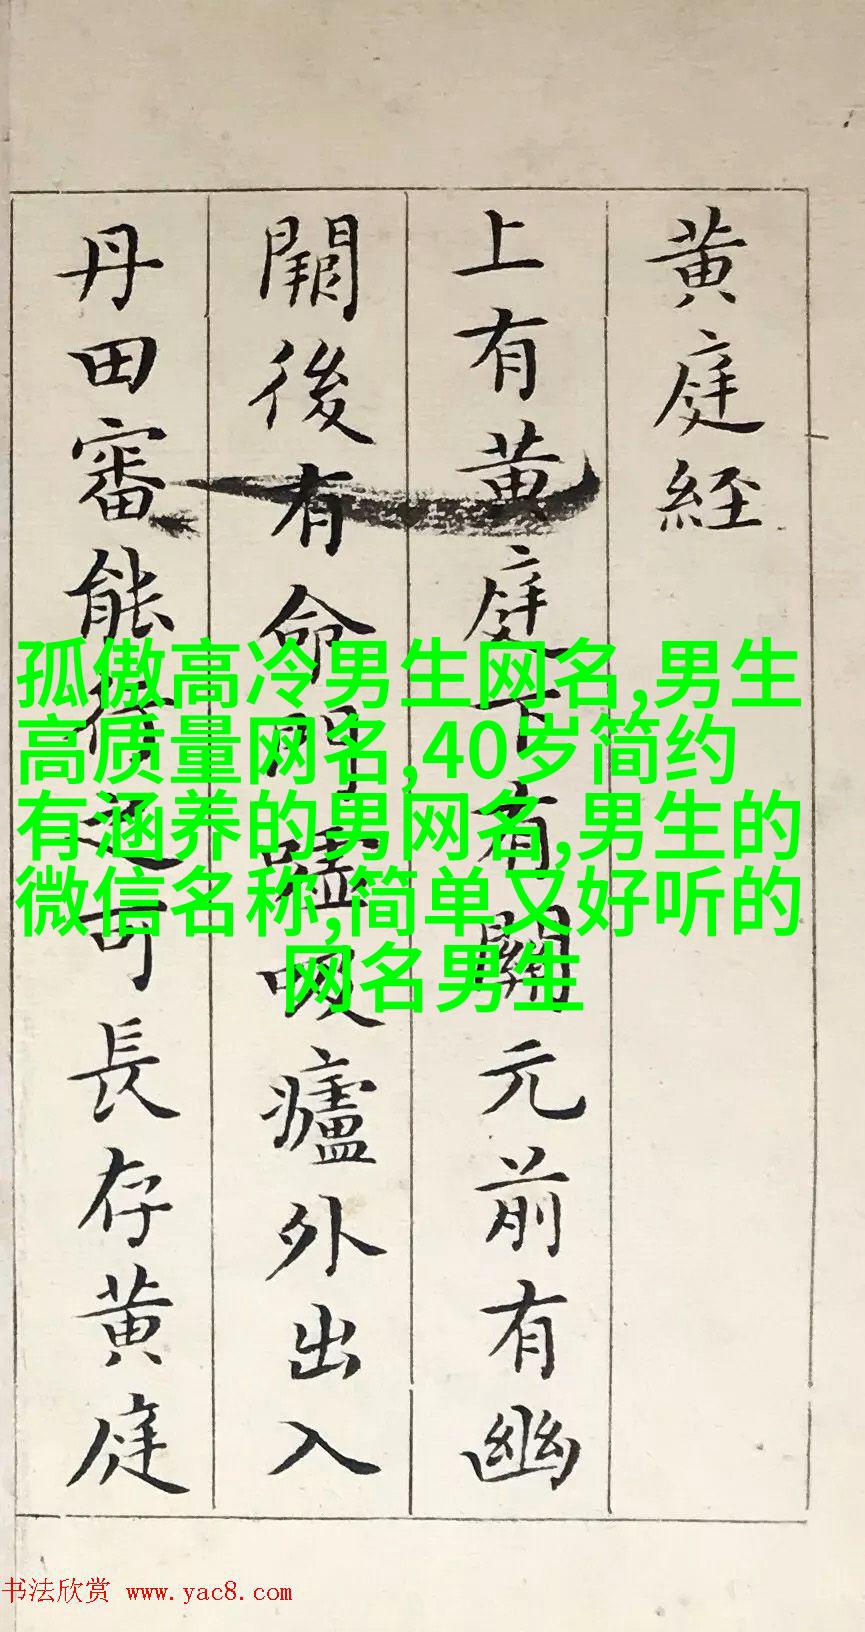 黄庭經
上有黄庭下有關元前有幽
闕後有命門嘘吸廬外出入
丹田審能行之可長存黄庭
孤傲高冷男生网名,男生
高质量网名,40岁简约
有涵养的男网名,男生的
微信名称,简单又好听的
网名男生
书法欣赏 www.yac8.com